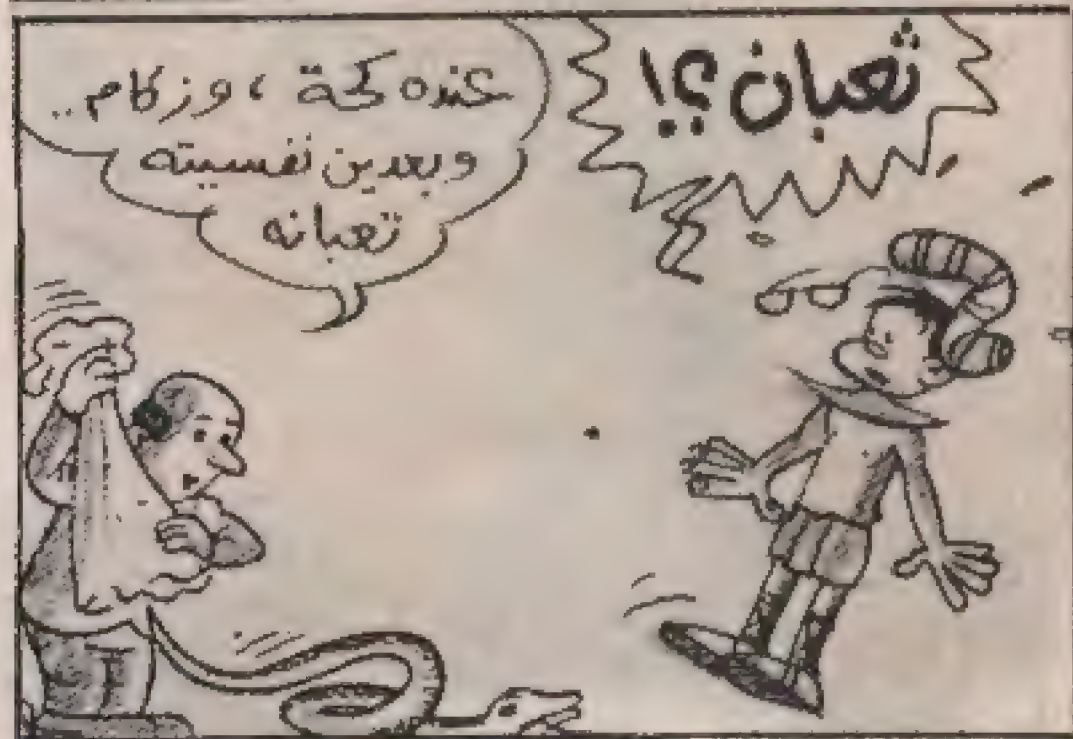 ثعبان؟!
عنده كحة، وزكام..
وبعدين نفسيته
تعبانه